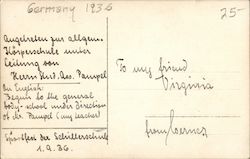 Germany 1936
25-
Angetreten zur allgem.
Körperschule unter
Leitung von
Herrn Pampel
In English:
Begun to the general
body-school under direction
of Mr. Pampel (my teacher)
Sportfest der Schillerschule
1.9.36.
To my friend
Virginia
from Werner